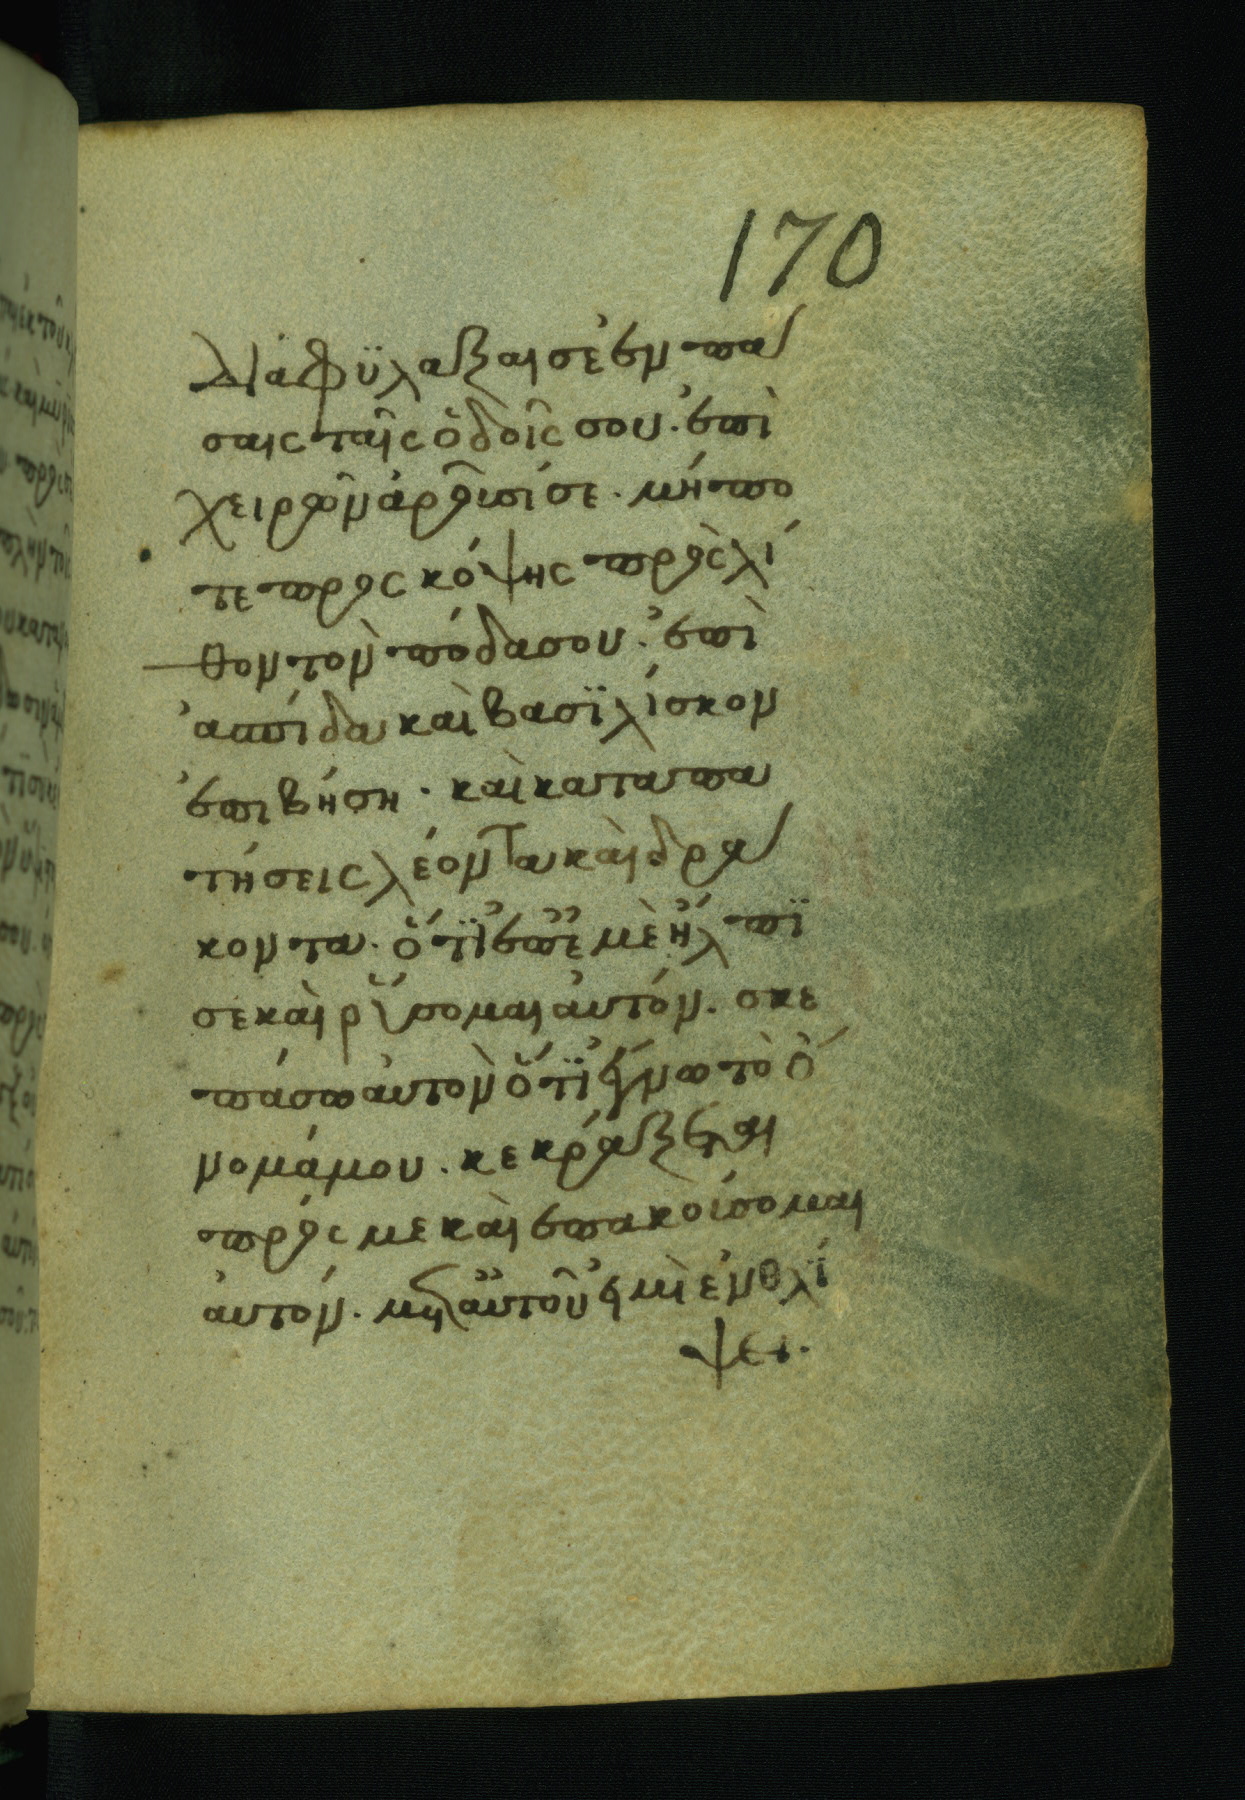 170
Διαφϋλαξαι σε ἐν πα
σαις ταῖς ὁδοῖς σου· ἐπὶ
χειρῶν ἀροῦσί σε· μήπο
τε προς κόψης πρὸς λί
θον τον πόδα σου· ἐπὶ
ἀσπίδα καὶ βασϊλίσκον
ἐπιβήση· καὶ καταπα
τήσεις λέοντα καὶ δρα
κοντα· ὅτϊ ἐπ ἐμὲ ἤλπϊ
σε καὶ ρύσομαι ἀυτόν· σκε
πάσω ἀυτὸν ὅτϊ ἔγνω τὸ ὄ
νομά μου· κεκράξεται
πρός με καὶ επακούσομαι
ἀυτόν· μετ ἀυτοῦ ἐιμὶ ἐν θλΐ
ψει·